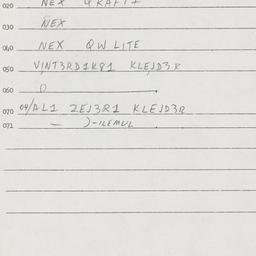 020 NEX
030 NEX
040 NEX QW LITE
050 VINT3RD1K81 KLEJD3R
060
070 04/AL1 2EJ3R1 KLEJD3R
071 )-ILEMUL